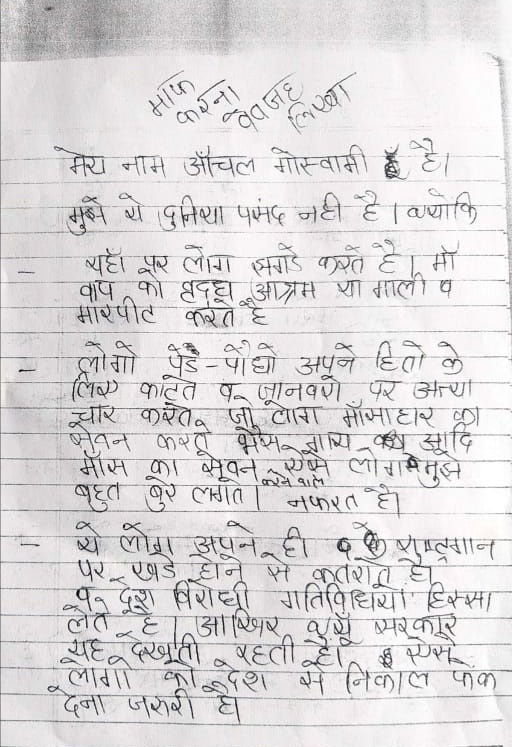 माफ करना वेवजह लिखा
मेरा नाम आँचल गोस्वामी है।
मुझे ये दुनिया पसंद नही है। क्योकि
- यहाँ पर लोग झगडे करते है। माँ
वाप को वृद्दा आश्रम या गाली व
मारपीट करते है
- लोगो पेडे-पौधो अपने हितो के
लिए काटते व जानवरो पर अत्या
चार करते, जो लोग माँसाहार का
सेवन करते भैंस गाय आदि
माँस का सेवन करने वाले ऐसे लोग मुझे
बहुत बुरे लगते। नफरत है।
- ये लोग अपने ही राष्ट्रगान
पर खडे होने से कतराते है।
व देश विरोधी गतिविधियो हिस्सा
लेते है। आखिर क्यूँ सरकार
यह देखती रहती है। ऐसे
लोगो को देश से निकाल फेंक
देना जरुरी है।